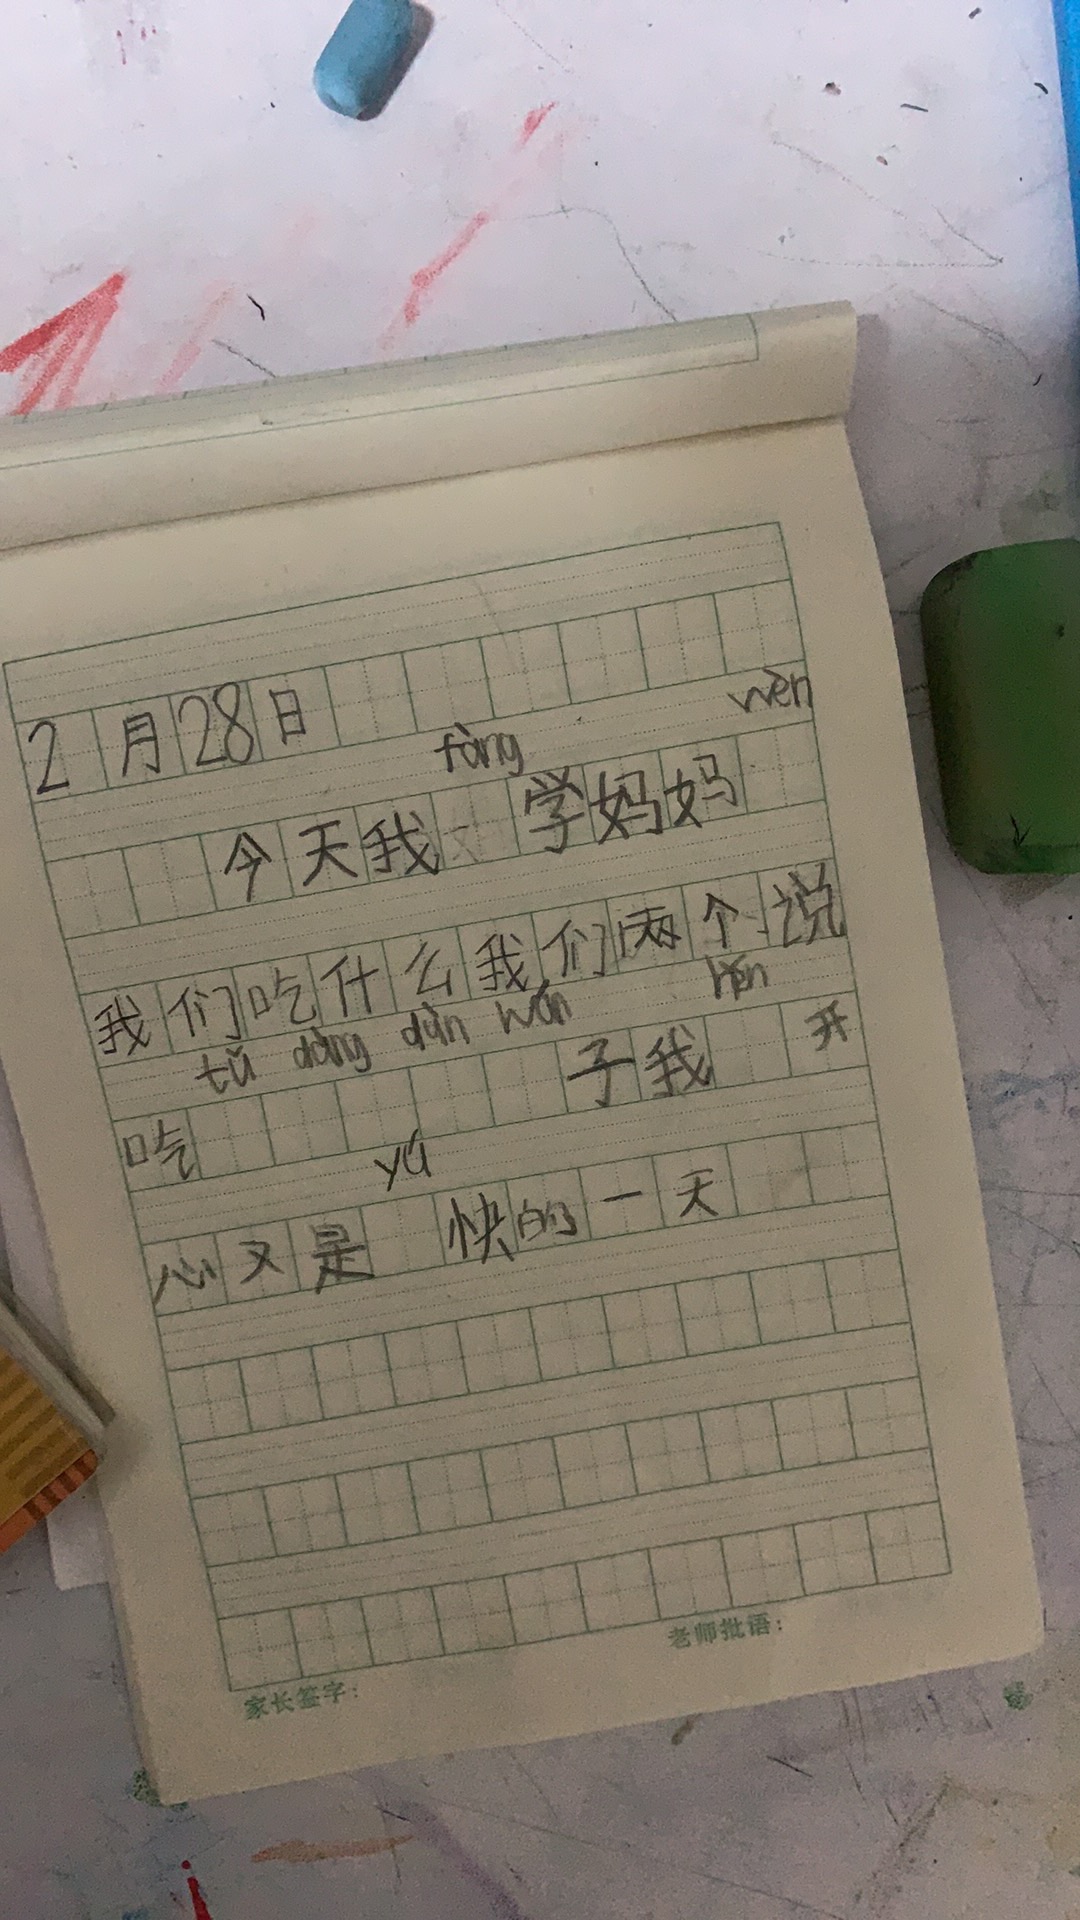 2月28日
fàng wèn
今天我 学妈妈
我们吃什么我们两个说
tǔ dòng dàn wán hěn
吃 子我 开
yú
心又是 快的一天
老师批语:
家长签字: